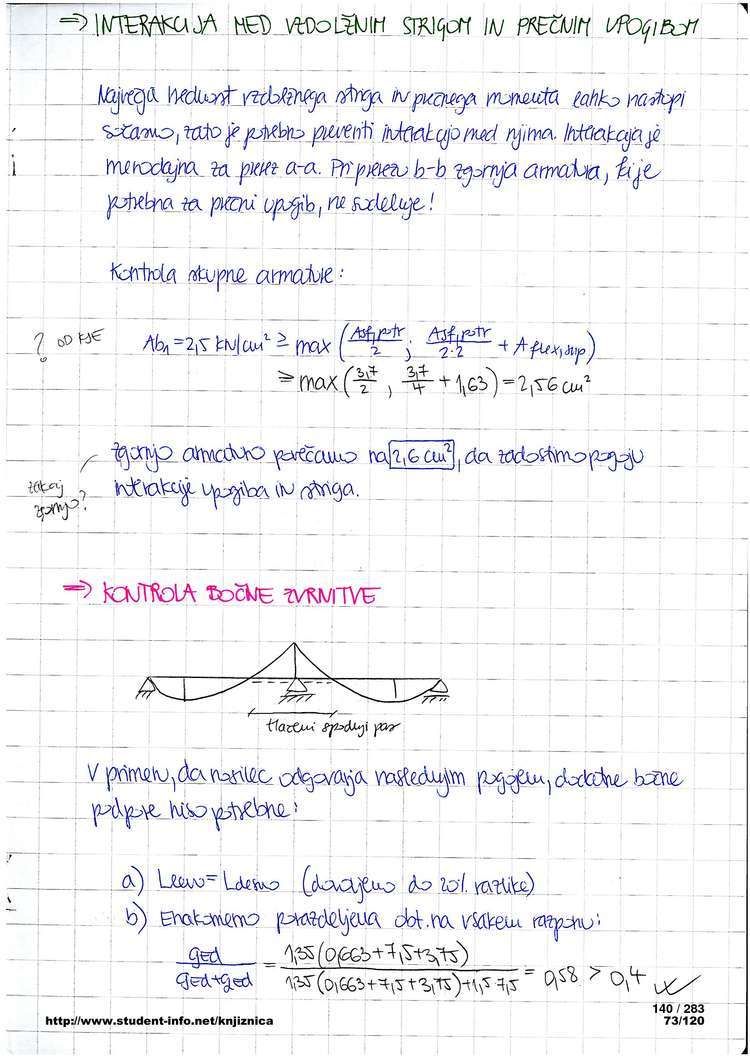 ⇒ INTERAKCIJA MED VZDOLŽNIM STRIGOM IN PREČNIM UPOGIBOM
Največja vrednost vzdolžnega striga in prečnega momenta lahko nastopi
sočasno, zato je potrebno preveriti interakcijo med njima. Interakcija je
merodajna za prerez a-a. Pri prerezu b-b zgornja armatura, ki je
potrebna za prečni upogib, ne sodeluje!
Kontrola skupne armature:
? OD KJE
Ab1 = 2,5 kN/cm² ≥ max (Asf,potr/2 ; Asf,potr/2·2 + A flex,sup)
≥ max (3,7/2 , 3,7/4 + 1,63) = 2,56 cm²
zgornjo armaturo povečamo na 2,6 cm², da zadostimo pogoju
interakcije upogiba in striga.
zakaj
zgornjo?
⇒ KONTROLA BOČNE ZVRNITVE
tlačeni spodnji pas
V primeru, da nosilec odgovarja naslednjim pogojem, dodatne bočne
podpore niso potrebne:
a) Llevo = Ldesno (dovoljeno do 20% razlike)
b) Enakomerno porazdeljena obt. na vsakem razponu:
gEd/gEd+qEd = 1,35(0,663+7,5+3,75)/1,35(0,663+7,5+3,75)+1,5 7,5 = 0,58 > 0,4 ✓
140 / 283
http://www.student-info.net/knjiznica
73/120